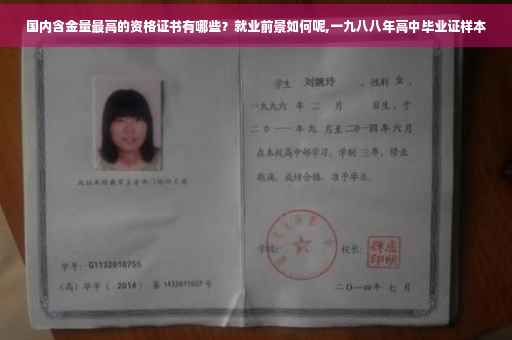 国内含金量最高的资格证书有哪些？就业前景如何呢,一九八八年高中毕业证样本
学生 刘婉玲 、性别 女 、
一九九六 年 二 月 日生，于
二〇一一年九 月至二〇一四年六月
在本校高中部学习，学制 三年，修业
期满，成绩合格，准予毕业。
学校： 校长：
学号：G1132010755
（高）毕字（ 2014 ）第 1432011027 号
二〇一四年 七 月